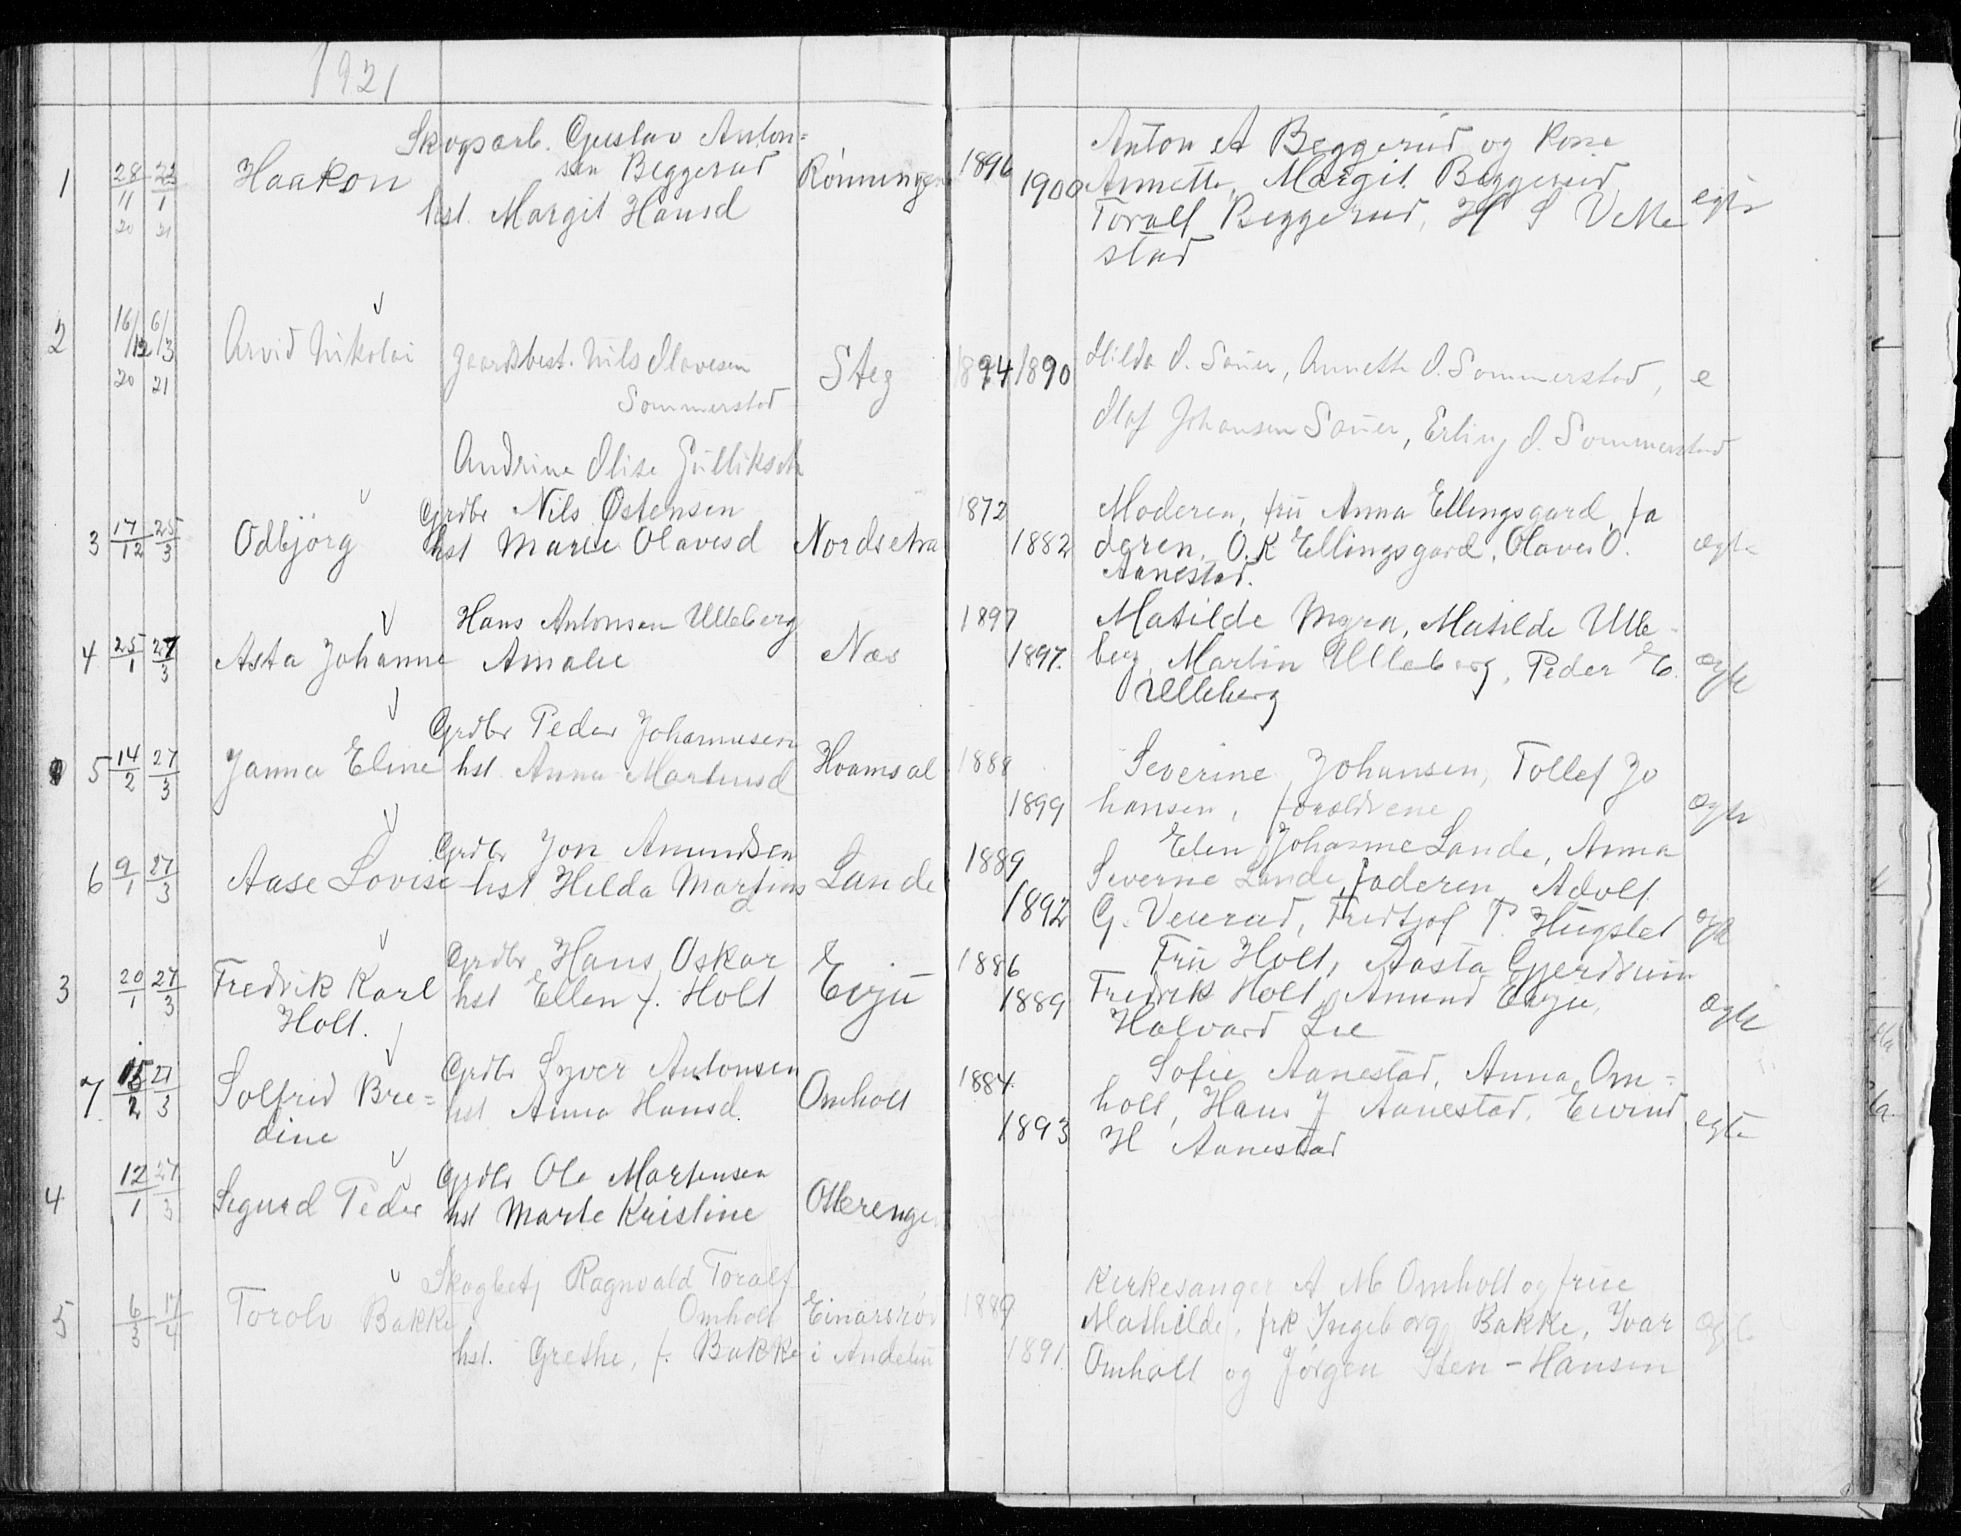 1921
1 28/11 20 23/1 21 Haakon Skogsarb. Gustav Anton=
sen Beggerud
hst. Margit Hansd Rønningen 1896 1900
Anton A Beggerud og Kone
Annette, Margit Beggerud
Toralf Beggerud, H S Velle
stad
2 16/12 20 6/3 21 Arvid Nikolai Gaardbest. Nils Olavesen
Sommerstad
Andrine Olise Gulliksd Steg 1894 1890
Hilda O. Sauer, Annette O. Sommerstad, e
Olaf Johansen Sauer, Erling O. Sommerstad
3 17/12 25/3 Odbjörg Grdbr Nils Østensen
hst Marie Olavesd Nordsetra 1872 1882
Moderen, fru Anna Ellingsgard, fa
deren, O. K Ellingsgard, Olaves O. ægte
Aanestad.
4 25/1 27/3 Asta Johanne Hans Antonsen Ulleberg
Amalie Næs 1897 1897.
Matilde Myra, Matilde Ulle-
berg, Martin Ulleberg, Peder E. ægte
Ulleberg
5 14/2 27/3 Janna Eline Grdbr Peder Johannesen
hst. Anna Martinsd Hvamsal 1888 1899
Severine Johansen, Tollef Jo
hansen, foraldrene ægte
6 9/1 27/3 Aase Lovise Grdbr Jon Amundsen
hst Hilda Martins Lande 1889 1892
Elen Johanne Lande, Anna
Severne Lande, faderen, Adolf
G. Veierud, Fredtjof T. Hugslet ægte
3 20/1 27/3 Fredrik Karl
Holt. Grdbr Hans Oskar
hst Ellen f. Holt Evju 1886 1889
Fru Holt, Aasta Gjerdrum
Fredrik Holt, Amund Evju, ægte
Halvard Lie
7. 15/2 27/3 Solfrid Bre=
dine Grdbr Syver Antonsen
hst Anna Hansd. Omholt 1884. 1893
Sofie Aanestad, Anna Om=
holt, Hans J Aanestad, Eivind egte
H Aanestad
4 12/1 27/3 Sigurd Peder Grdbr Ole Martinsen
hst Marte Kristine Østerenge
5 6/3 17/4 Torolv Bakke Skogbetj Ragnvald Toralf
Omholt
hst. Grethe, f. Bakke Einarsrøv
i Andebu 1889 1891.
Kirkesanger A M Omholt og frue
Mathilde, frk Ingeborg Bakke, Ivar ægte
Omholt og Jørgen Sten-Hansen